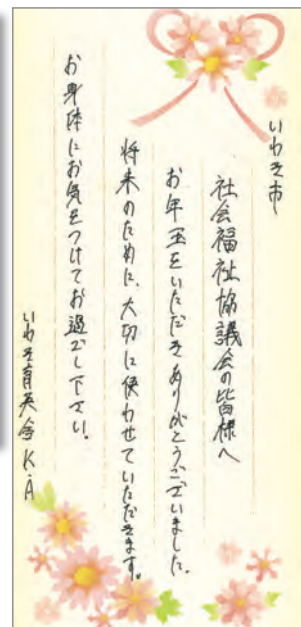 いわき市
社会福祉協議会の皆様へ
お年玉をいただきありがとうございました。
将来のために、大切に使わせていただきます。
お身体にお気をつけてお過ごし下さい。
いわき育英舎 K.A